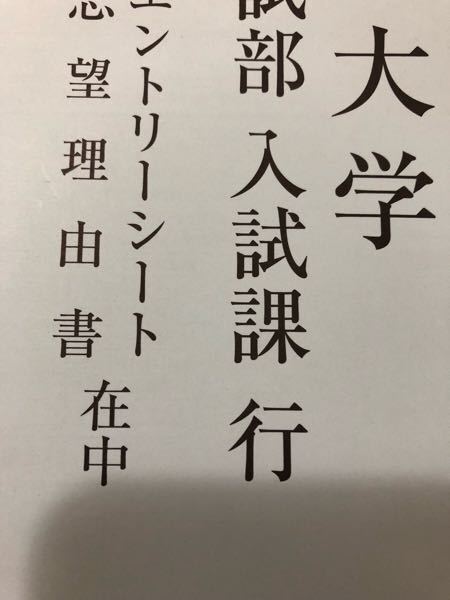 大学
試部 入試課 行
エントリーシート
志望理由書
在中